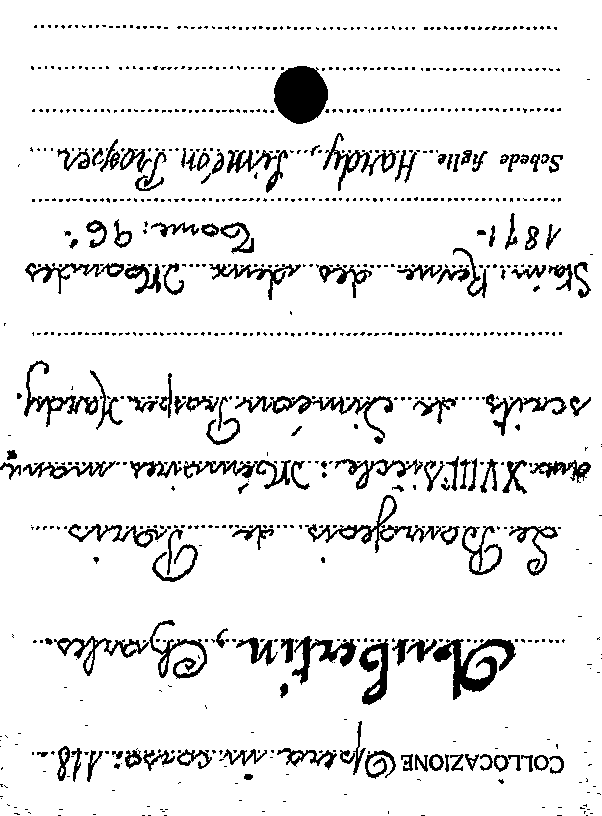 COLLOCAZIONE Opera in corso: 118 -
Aubertin, Charles.
Le Bourgeois de Paris
au XVIII siècle: Mémoires manu
scrits de Siméon Prosper Hardy.
Sta in: Revue des deux Mondes
1871 - Tome: 96°:
Schede figlie Hardy, Siméon Prosper